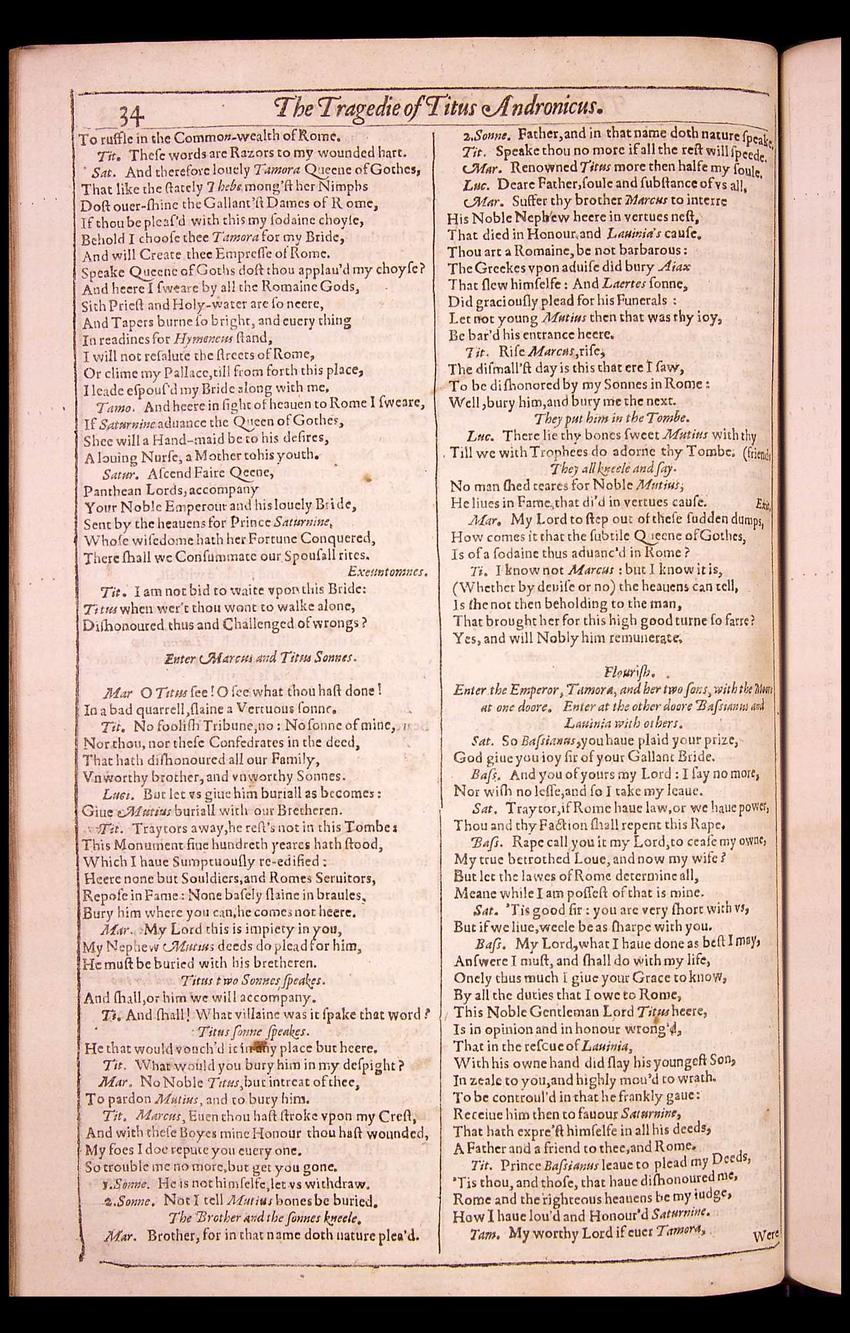 34
The Tragedie of Titus Andronicus.
To ruffle in the Common-wealth of Rome.
Tit. These words are Razors to my wounded hart.
Sat. And therefore louely Tamora Queene of Gothes,
That like the stately Thebe mong'st her Nimphs
Dost ouer-shine the Gallant'st Dames of Rome,
If thou be pleas'd with this my sodaine choyse,
Behold I choose thee Tamora for my Bride,
And will Create thee Empresse of Rome.
Speake Queene of Goths dost thou applau'd my choyse?
And heere I sweare by all the Romaine Gods,
Sith Priest and Holy-water are so neere,
And Tapers burne so bright, and euery thing
In readines for Hymeneus stand,
I will not resalute the streets of Rome,
Or clime my Pallace, till from forth this place,
I leade espous'd my Bride along with me.
Tamo. And heere in sight of heauen to Rome I sweare,
If Saturnine aduance the Queen of Gothes,
Shee will a Hand-maid be to his desires,
A louing Nurse, a Mother to his youth.
Satur. Ascend Faire Qeene,
Panthean Lords, accompany
Your Noble Emperour and his louely Bride,
Sent by the heauens for Prince Saturnine,
Whose wisedome hath her Fortune Conquered,
There shall we Consummate our Spousall rites.
Exeunt omnes.
Tit. I am not bid to waite vpon this Bride:
Titus when wer't thou wont to walke alone,
Dishonoured thus and Challenged of wrongs?
Enter Marcus and Titus Sonnes.
Mar O Titus see! O see what thou hast done!
In a bad quarrell, slaine a Vertuous sonne.
Tit. No foolish Tribune, no: No sonne of mine,
Nor thou, nor these Confedrates in the deed,
That hath dishonoured all our Family,
Vnworthy brother, and vnworthy Sonnes.
Luci. But let vs giue him buriall as becomes:
Giue Mutius buriall with our Bretheren.
Tit. Traytors away, he rest's not in this Tombe:
This Monument fiue hundreth yeares hath stood,
Which I haue Sumptuously re-edified:
Heere none but Souldiers, and Romes Seruitors,
Repose in Fame: None basely slaine in braules,
Bury him where you can, he comes not heere.
Mar. My Lord this is impiety in you,
My Nephew Mutius deeds do plead for him,
He must be buried with his bretheren.
Titus two Sonnes speakes.
And shall, or him we will accompany.
Ti. And shall! What villaine was it spake that word?
Titus sonne speakes.
He that would vouch'd it in any place but heere.
Tit. What would you bury him in my despight?
Mar. No Noble Titus, but intreat of thee,
To pardon Mutius, and to bury him.
Tit. Marcus, Euen thou hast stroke vpon my Crest,
And with these Boyes mine Honour thou hast wounded,
My foes I doe repute you euery one.
So trouble me no more, but get you gone.
1.Sonne. He is not himselfe, let vs withdraw.
2.Sonne. Not I tell Mutius bones be buried.
The Brother and the sonnes kneele.
Mar. Brother, for in that name doth nature plea'd.
2.Sonne. Father, and in that name doth nature speake.
Tit. Speake thou no more if all the rest will speede.
Mar. Renowned Titus more then halfe my soule.
Luc. Deare Father, soule and substance of vs all,
Mar. Suffer thy brother Marcus to interre
His Noble Nephew heere in vertues nest,
That died in Honour and Lauinia's cause.
Thou art a Romaine, be not barbarous:
The Greekes vpon aduise did bury Aiax
That slew himselfe: And Laertes sonne,
Did graciously plead for his Funerals:
Let not young Mutius then that was thy ioy,
Be bar'd his entrance heere.
Tit. Rise Marcus, rise,
The dismall'st day is this that ere I saw,
To be dishonored by my Sonnes in Rome:
Well, bury him, and bury me the next.
They put him in the Tombe.
Luc. There lie thy bones sweet Mutius with thy
Till we with Trophees do adorne thy Tombe. (friends
They all kneele and say.
No man shed teares for Noble Mutius,
He liues in Fame, that di'd in vertues cause. Exit.
Mar. My Lord to step out of these sudden dumps,
How comes it that the subtile Queene of Gothes,
Is of a sodaine thus aduanc'd in Rome?
Ti. I know not Marcus: but I know it is,
(Whether by deuise or no) the heauens can tell,
Is she not then beholding to the man,
That brought her for this high good turne so farre?
Yes, and will Nobly him remunerate.
Flourish.
Enter the Emperor, Tamora, and her two sons, with the Moore
at one doore. Enter at the other doore Bassianus and
Lauinia with others.
Sat. So Bassianus, you haue plaid your prize,
God giue you ioy sir of your Gallant Bride.
Bass. And you of yours my Lord: I say no more,
Nor wish no lesse, and so I take my leaue.
Sat. Traytor, if Rome haue law, or we haue power,
Thou and thy Faction shall repent this Rape.
Bass. Rape call you it my Lord, to cease my owne,
My true betrothed Loue, and now my wife?
But let the lawes of Rome determine all,
Meane while I am possest of that is mine.
Sat. 'Tis good sir: you are very short with vs,
But if we liue, weele be as sharpe with you.
Bass. My Lord, what I haue done as best I may,
Answere I must, and shall do with my life,
Onely thus much I giue your Grace to know,
By all the duties that I owe to Rome,
This Noble Gentleman Lord Titus heere,
Is in opinion and in honour wrong'd,
That in the rescue of Lauinia,
With his owne hand did slay his youngest Son,
In zeale to you, and highly mou'd to wrath.
To be controul'd in that he frankly gaue:
Receiue him then to fauour Saturnine,
That hath expre'st himselfe in all his deeds,
A Father and a friend to thee, and Rome.
Tit. Prince Bassianus leaue to plead my Deeds,
'Tis thou, and those, that haue dishonoured me,
Rome and the righteous heauens be my iudge,
How I haue lou'd and Honour'd Saturnine.
Tam. My worthy Lord if euer Tamora,
Were